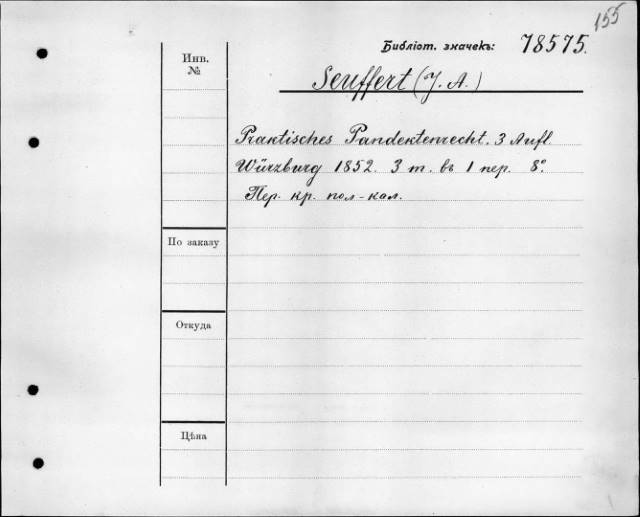 155
Библіот. значекъ: 78575.
Инв.
№
Seuffert (J. A.)
Praktisches Pandektenrecht. 3 Aufl.
Würzburg 1852. 3 т. въ 1 пер. 8º.
Пер. кр. пол-кал.
По заказу
Откуда
Цѣна